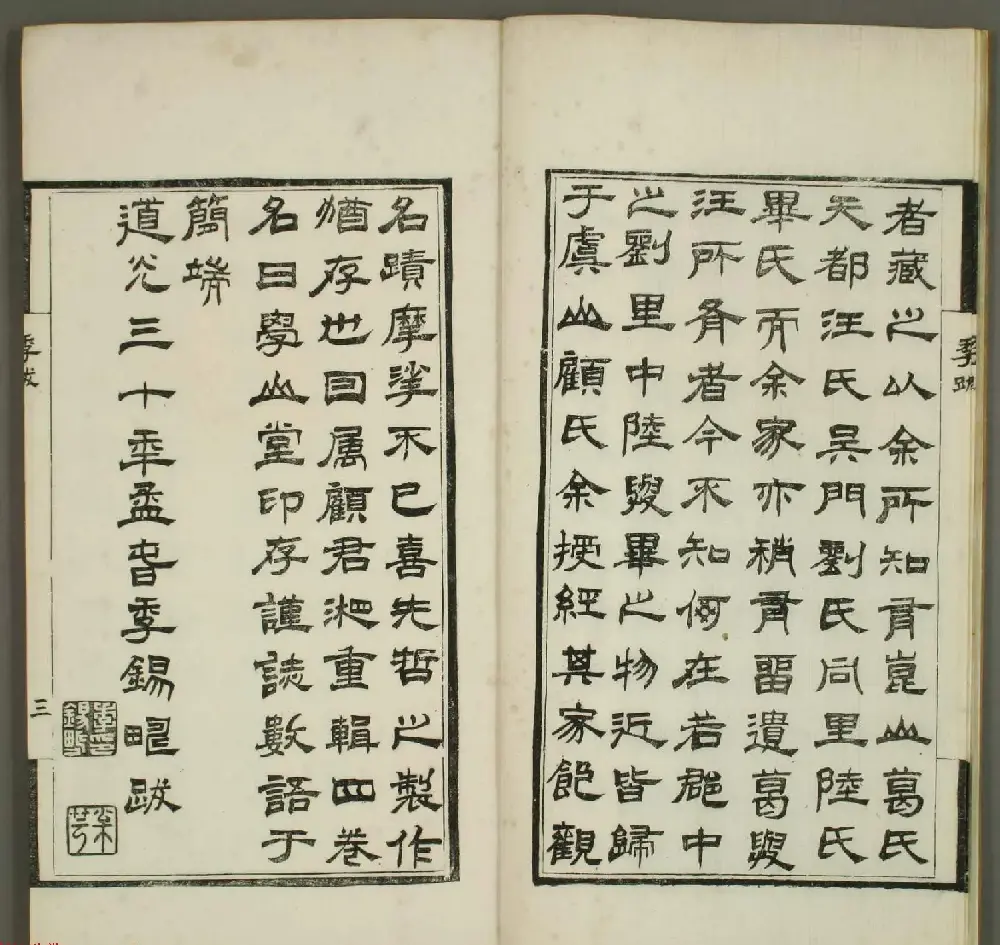 者藏之以余所知有崑山葛氏
天都汪氏吳門劉氏同里陸氏
畢氏而余家亦稍有畱遺葛與
汪所有者今不知何在若郡中
之劉里中陸與畢之物近皆歸
于虞山顧氏余授經其家飽觀
季跋
名蹟摩挲不已喜先哲之製作
猶存也因属顧君湘重輯四卷
名曰學山堂印存謹誌數語于
簡端
道光三十年孟春季錫疇跋
季跋
三